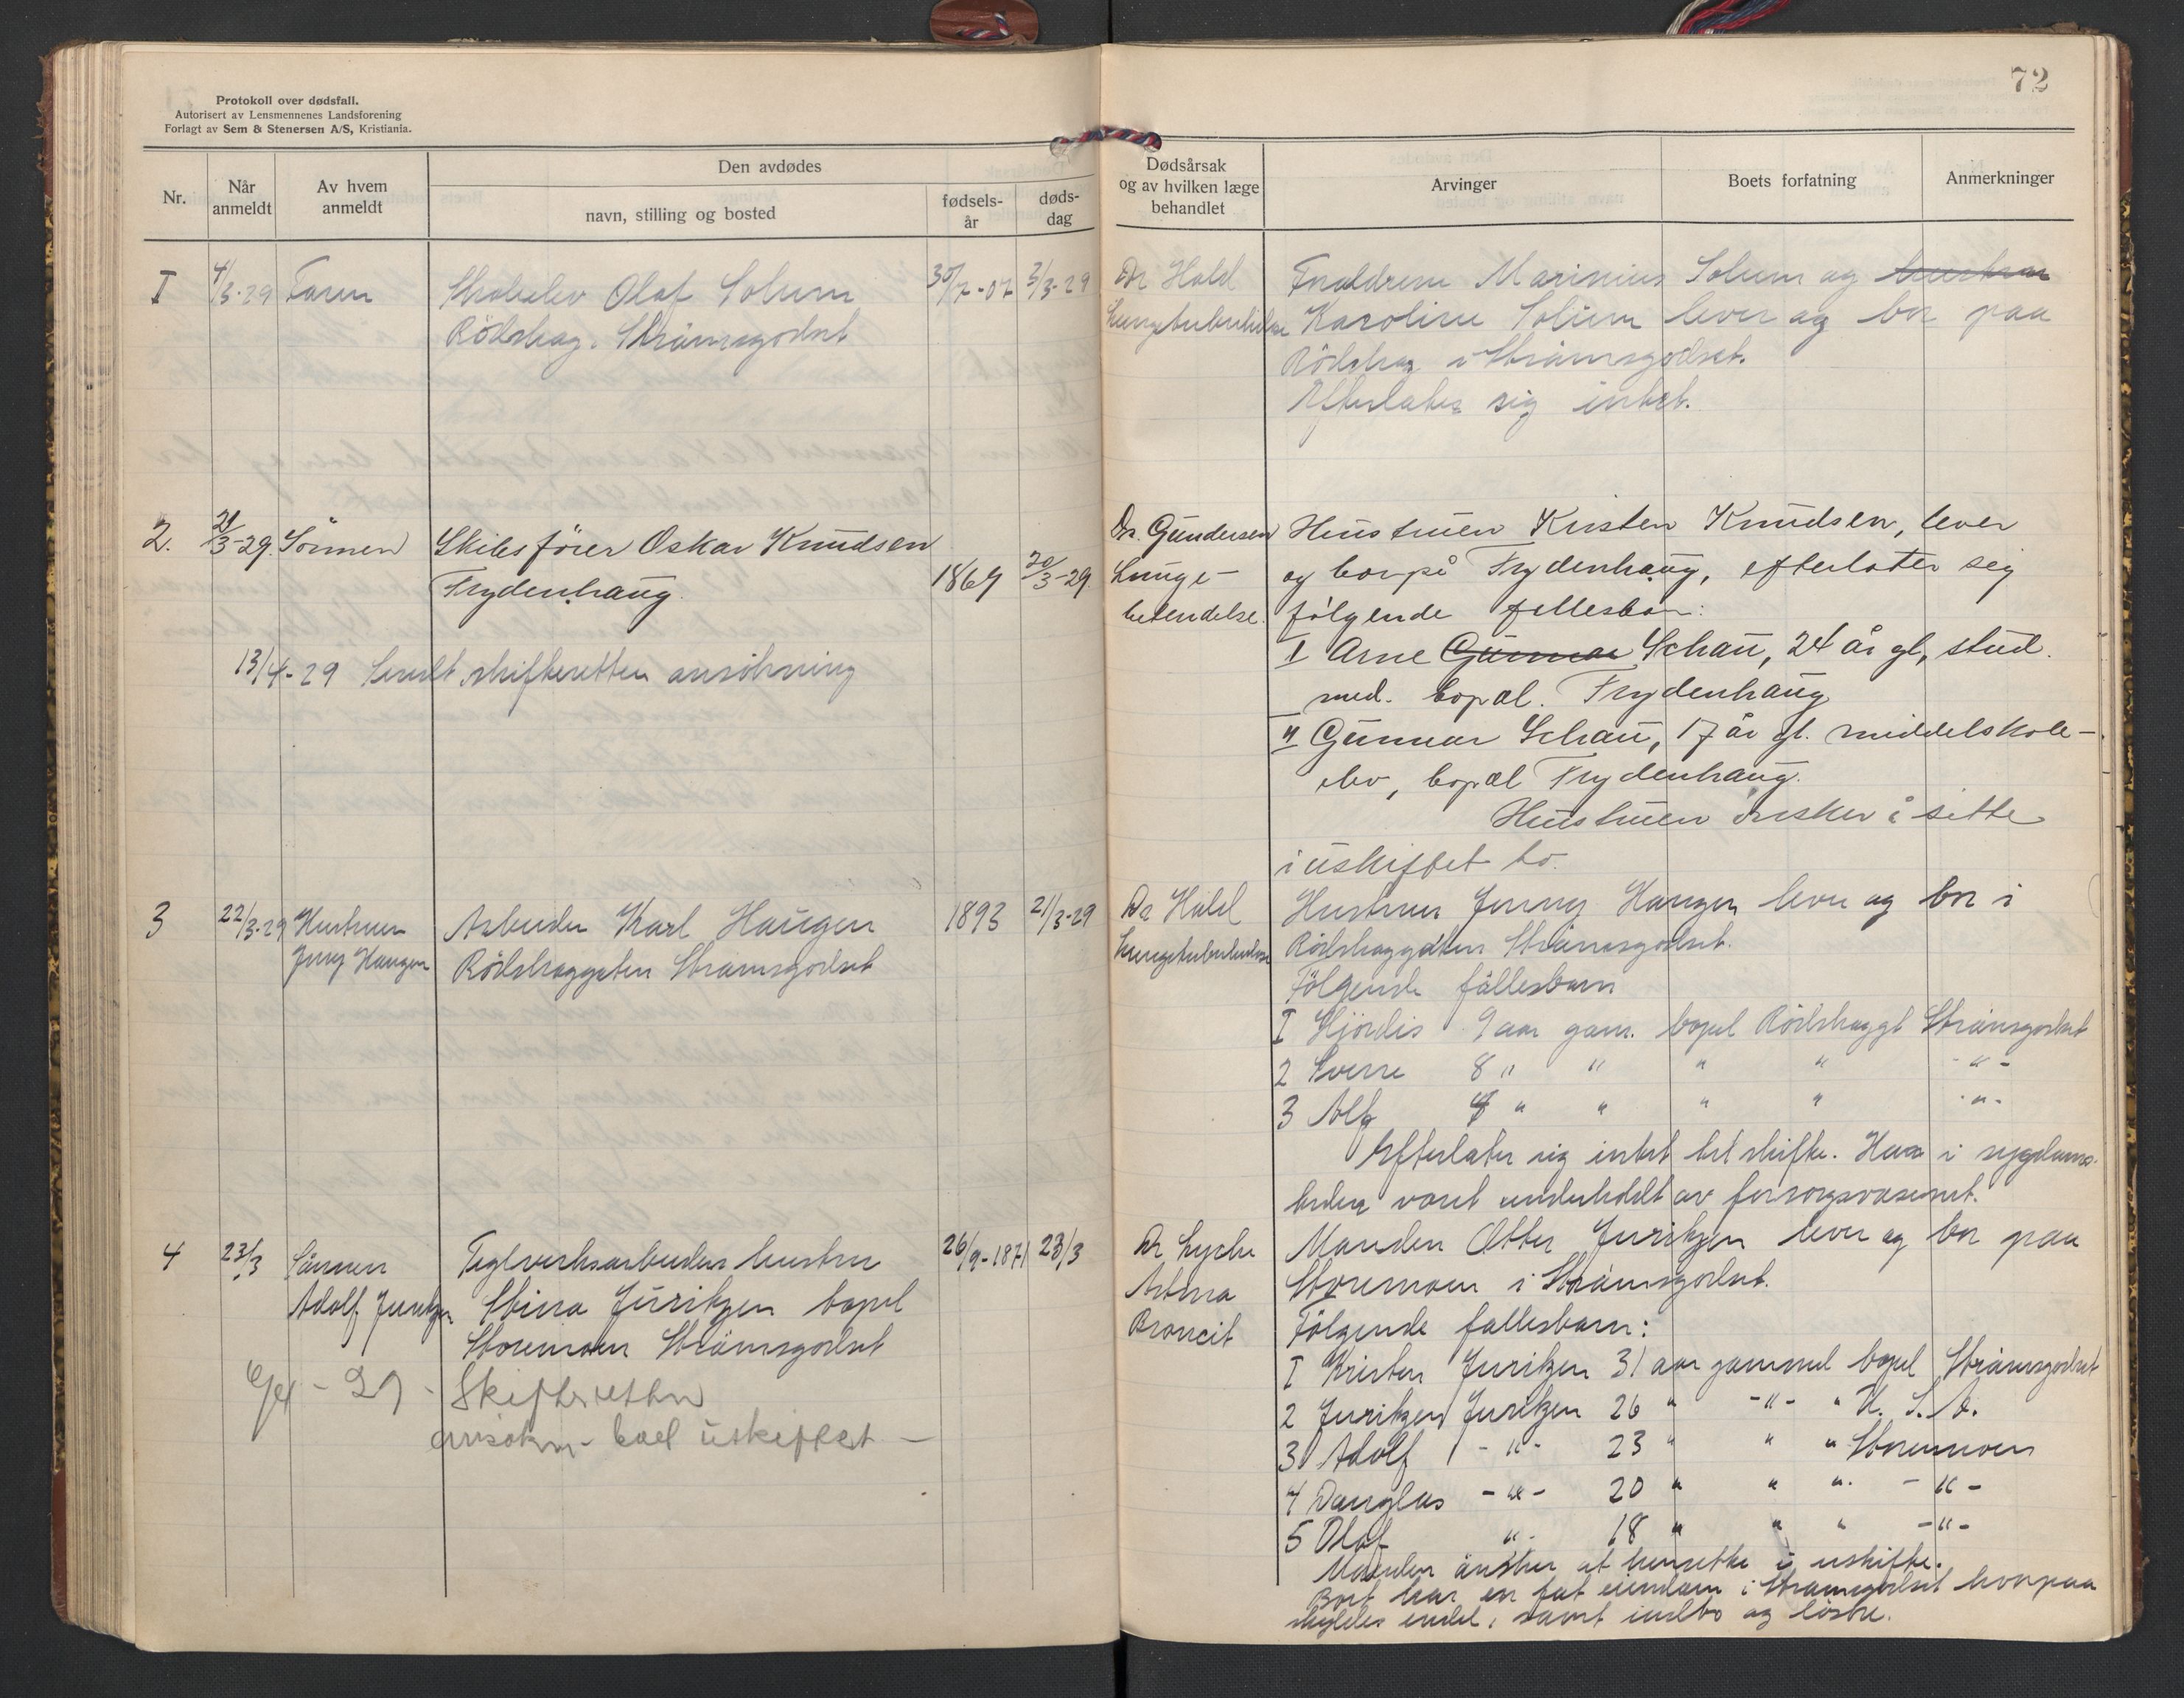 72
Protokoll over dødsfall.
Autorisert av Lensmennenes Landsforening
Forlagt av Sem & Stenersen A/S, Kristiania.
Nr.
Når anmeldt
Av hvem anmeldt
Den avdødes
navn, stilling og bosted
fødsels-år
døds-dag
Dødsårsak og av hvilken læge behandlet
Arvinger
Boets forfatning
Anmerkninger
I 4/3-29 Faren Olaf Solum 30/7-07 3/3-29
Rödskog. Strömsgodset
Dr Hald
Lungetuberkulose
Foraldrene Marinius Solum og hustru
Karoline Solum lever og bor paa
Rödskog i Strömsgodset.
Efterlater sig intet.
2. 21/3-29. Sönnen Skibsförer Oskar Knudsen
Frydenhaug. 1869 20/3-29
13/4-29 Sendt skifteretten ansökning
Dr. Gundersen
Lunge-
betendelse.
Hustruen Kristen Knudsen, lever
og bor på Frydenhaug, efterlater sig
følgende fellesbarn:
I Arne Gunnar Schau, 24 år gl, stud.
med. bopæl. Frydenhaug
II Gunnar Schau, 17 år gl. middelskole-
elev, bopæl Frydenhaug.
Hustruen ønsker å sitte
i uskiftet bo.
3 22/3-29 Hustruen Arbeider Karl Haugen 1893 21/3-29
Jeny Haugen Rödskoggaten Strömsgodset
Dr Hald
Lungetuberkulose
Hustruen Jenny Haugen lever og bor i
Rödskoggaten Strömsgodset.
Følgende fællesbarn
I Hjördis 9 aar gam. bopel Rödskoggt Strömsgodset
2 Sverre 8 " " " " - " -
3 Alf 4 " " " " - " -
Efterlater sig intet til skifte. Har i sygdoms-
tiden været underholdt av forsorgsvæsenet.
4 23/3 Sönnen Teglverksarbeider hustru 26/9-1871 23/3
Adolf Juritzen Stina Juritzen bopel
Storemoen Strömsgodset
- 29 - Skifteretten
ansøkn - boet uskiftet -
Dr Lyche
Astma
Broncit
Manden Otter Juritzen lever og bor paa
Storemoen i Strömsgodset.
Følgende fallesbarn:
I Kristen Juritzen 31 aar gammel bopel Strömsgodset
2 Juritzen Juritzen 26 " - " - " U. S. A.
3 Adolf - " - 23 " " " Storemoen
4 Douglas - " - 20 " " " - " -
5 Olaf " - 18 " " " - " -
Manden önsker at hensitte i uskifte.
Boet har en fast eiendom i Strömsgodset hvorpaa
skyldes endel, samt indbo og lösöre.